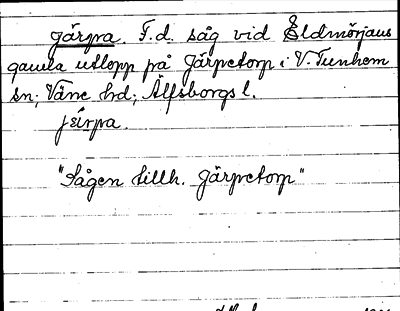 Järpra. F.d. såg vid Eldmörjans
gamla utlopp på Järpetorp i V. Tunhem
sn; Väne hrd; Älfsborgs l.
järpra.
"Sågen tillh. Järpetorp"